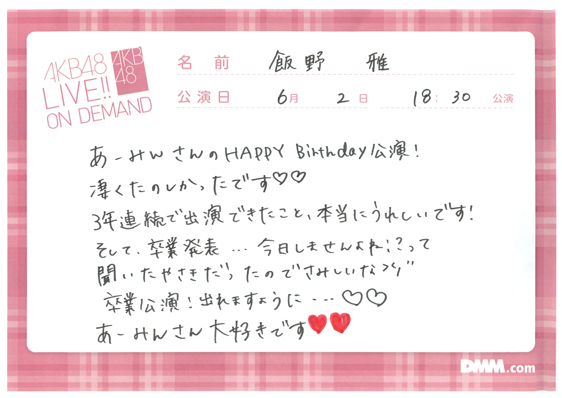 AKB48
LIVE!!
ON DEMAND
AKB
48
名前 飯野 雅
公演日 6月 2日 18:30 公演
あーみんさんのHAPPY Birthday公演!
凄くたのしかったです♡♡
3年連続で出演できたこと、本当にうれしいです!
そして、卒業発表…今日しませんよね??って
聞いたやさきだったのでさみしいな
卒業公演!出れますように…♡♡
あーみんさん大好きです♥♥
DMM.com